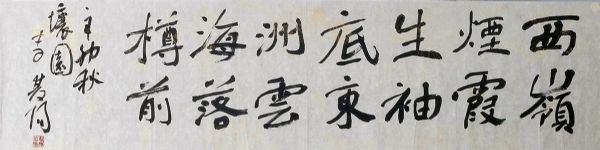 西嶺
煙霞
生袖
底東
洲雲
海落
樽前
辛卯秋
壤園